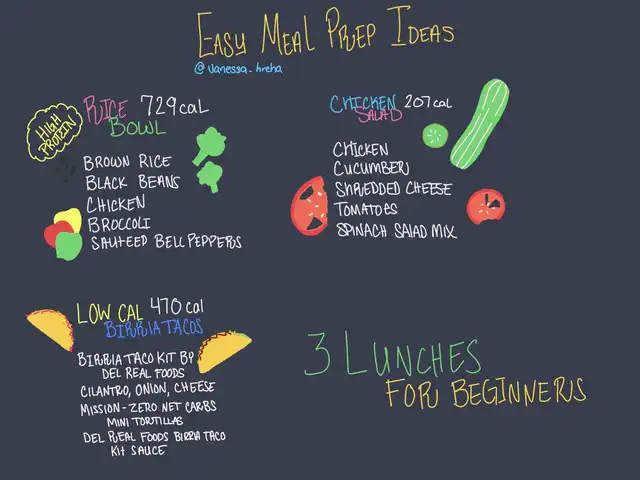 EASY MEAL PREP IDEAS
@vanessa_hreha
HIGH
PROTEIN
RICE 729 cal
BOWL
BROWN RICE
BLACK BEANS
CHICKEN
BROCCOLI
SAUTEED BELL PEPPERS
CHICKEN 207 cal
SALAD
CHICKEN
CUCUMBER
SHREDDED CHEESE
TOMATOES
SPINACH SALAD MIX
LOW CAL 470 cal
BIRRIA TACOS
BIRRIA TACO KIT BP
DEL REAL FOODS
CILANTRO, ONION, CHEESE
MISSION-ZERO NET CARBS
MINI TORTILLAS
DEL REAL FOODS BIRRIA TACO
Kit SAUCE
3 LUNCHES
FOR BEGINNERS